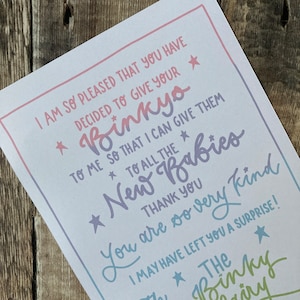 I AM SO PLEASED THAT YOU HAVE
DECIDED TO GIVE YOUR
Binkys
TO ME SO THAT I CAN GIVE THEM
TO ALL THE
New Babies
THANK YOU
You are so very kind
I MAY HAVE LEFT YOU A SURPRISE!
THE
Binky
Fairy